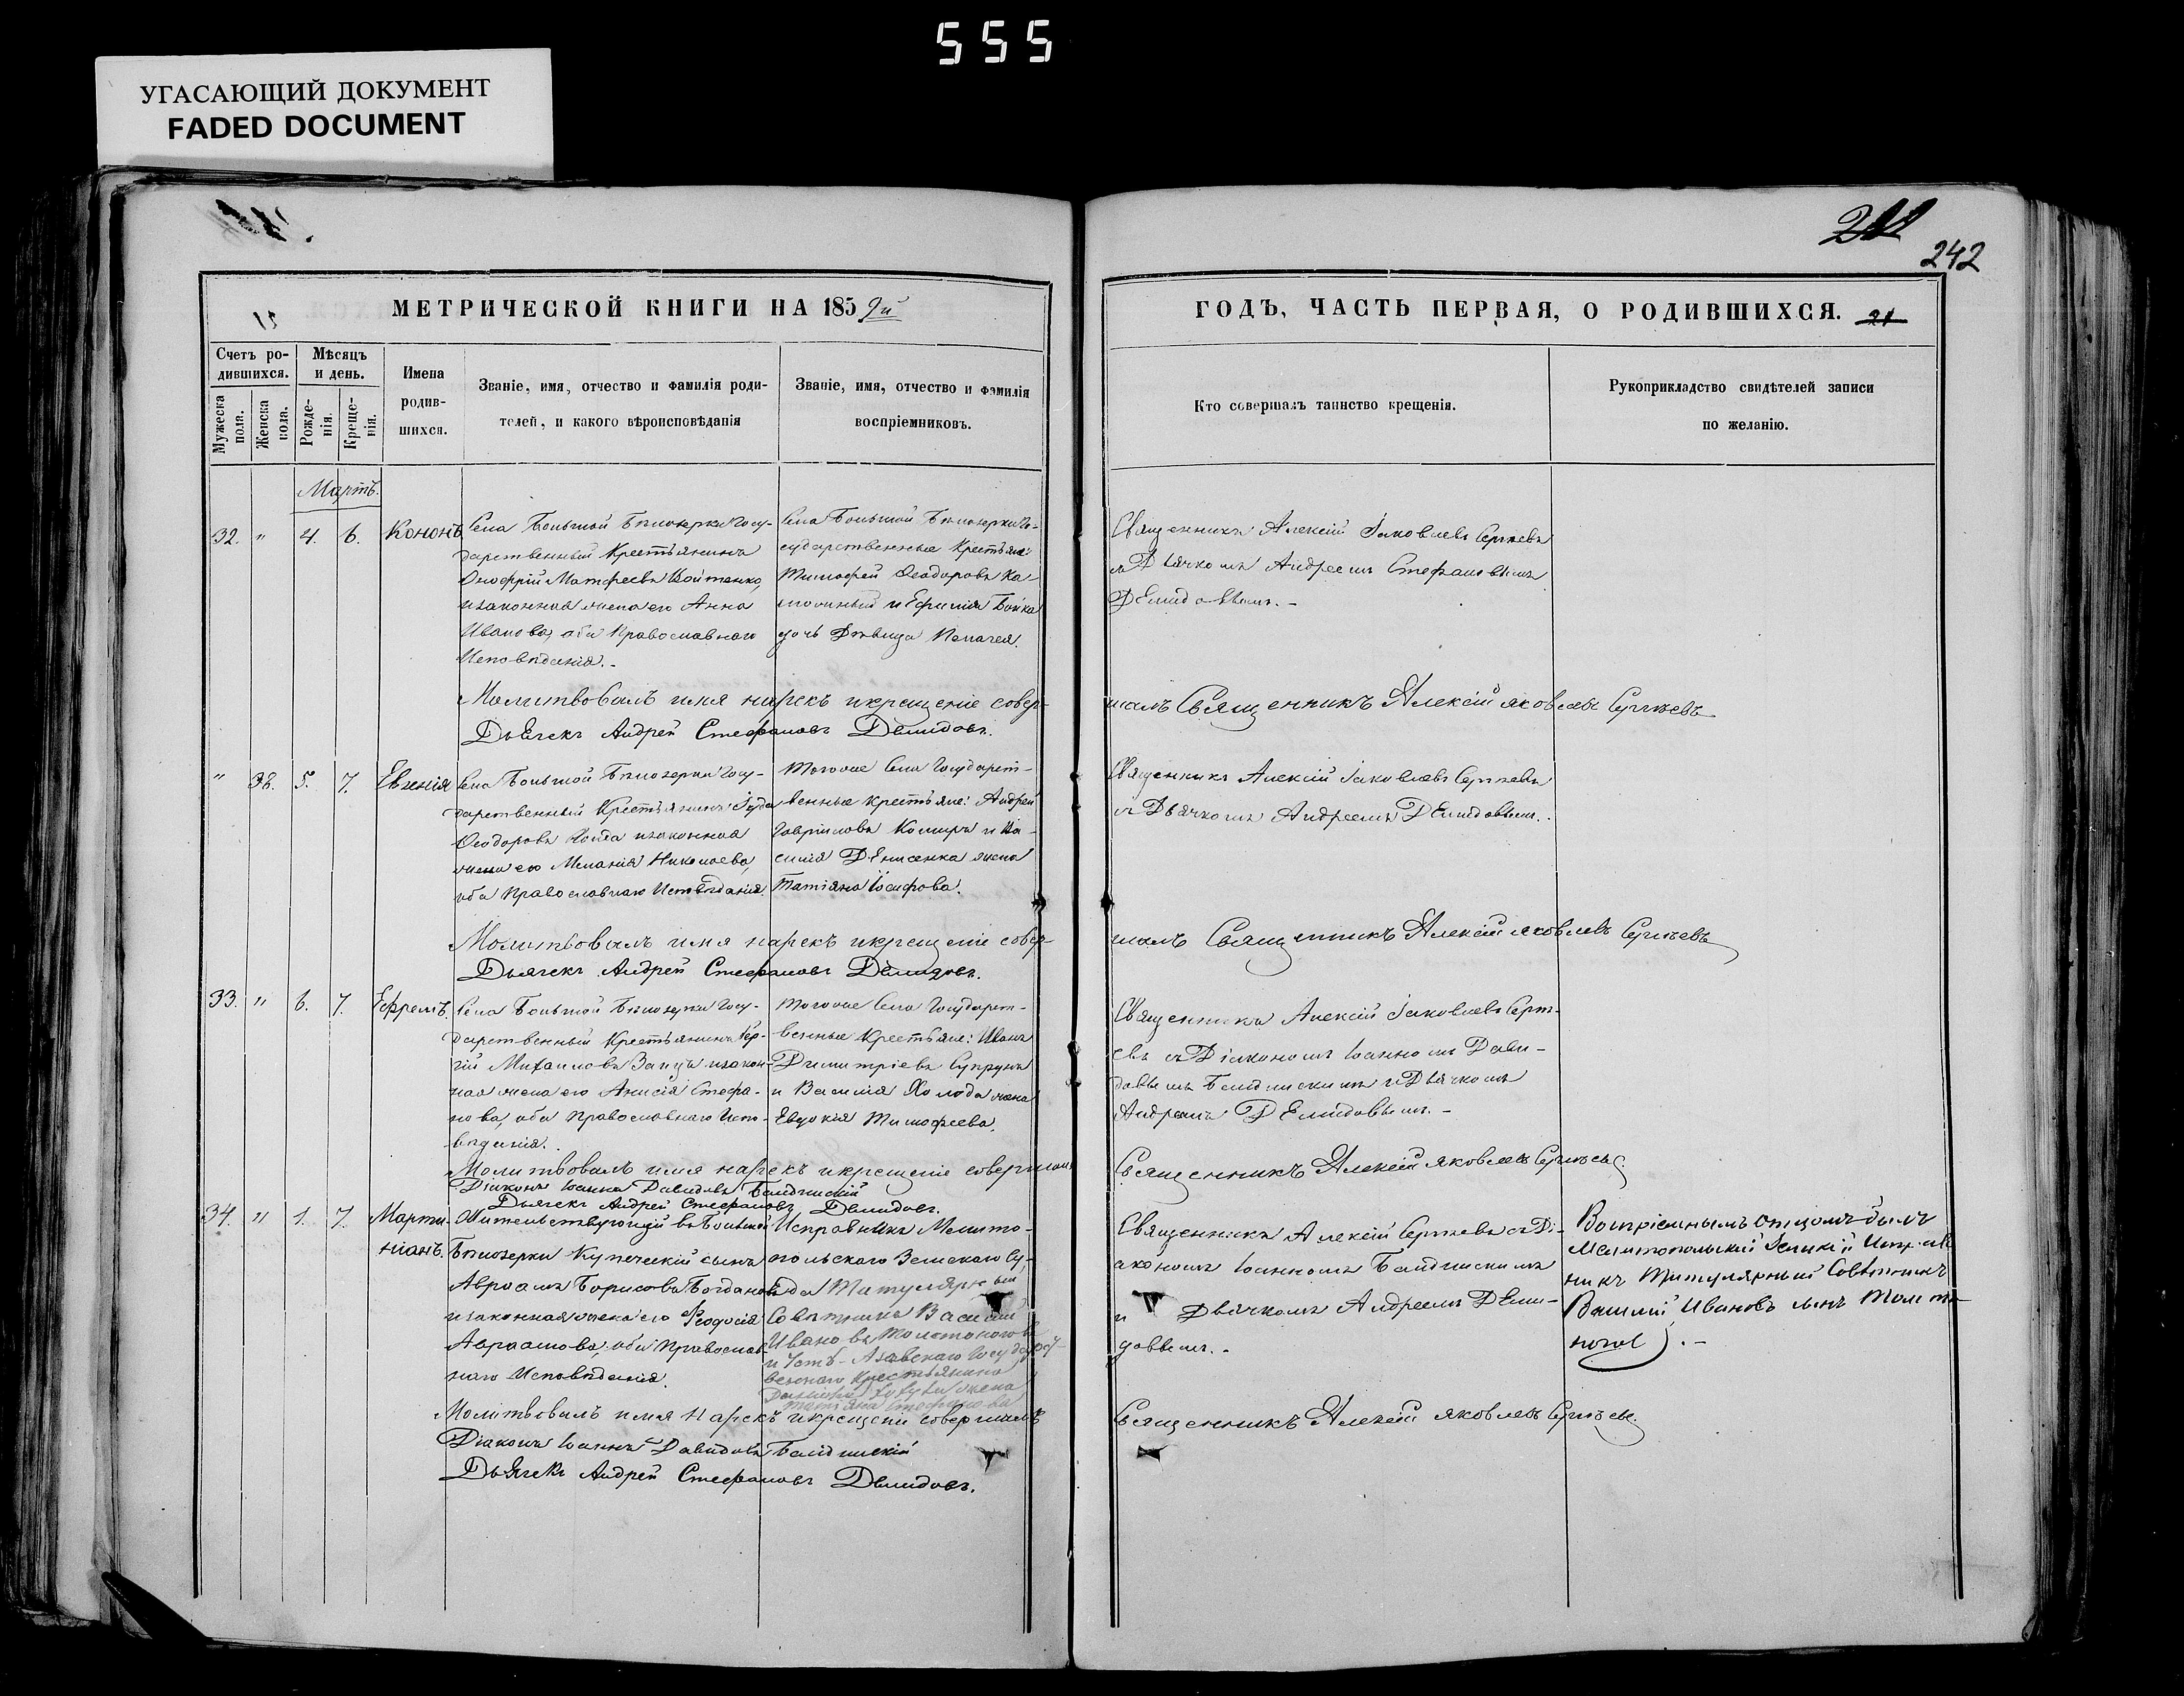 555
УГАСАЮЩИЙ ДОКУМЕНТ
FADED DOCUMENT
242
МЕТРИЧЕСКОЙ КНИГИ НА 1859й
ГОДЪ, ЧАСТЬ ПЕРВАЯ, О РОДИВШИХСЯ. 21
Счетъ ро-
дившихся.
Мѣсяцъ
и день.
Мужеска
пола.
Женска
пола.
Рожде-
нія.
Креще-
нія.
Имена
родив-
шихся.
Званіе, имя, отчество и фамилія роди-
телей, и какого вѣроисповѣданія
Званіе, имя, отчество и фамилія
воспріемниковъ.
Кто совершалъ таинство крещенія.
Рукоприкладство свидѣтелей записи
по желанію.
Мартъ.
32. " 4. 6. Кононъ
Села Большой Бѣлозерки Госу-
дарственный Крестьянинъ
Онофрій Матфеевъ Войтенко,
изаконная жена его Анна
Иванова, оба Православнаго
Исповѣданія.-
Села Большой Бѣлозерки Го-
сударственные Крестьяне:
Тимофей Ѳеодоровъ
и Бойка
дочь Дѣвица Пелагея.
Священникъ Алексій Іаковлевъ Сергѣевъ
съ Дьячкомъ Андреемъ Стефановымъ
Демидовымъ.-
Молитвовалъ имя нарекъ икрещеніе совер-
шалъ Священникъ Алексій Яковлевъ Сергѣевъ
Дьячекъ Андрей Стефановъ Демидовъ.
" 38. 5. 7. Евгенія
Села Большой Бѣлозерки Госу-
дарственный Крестьянинъ
Ѳеодоровъ изаконная
жена его Меланія Николаева,
оба Православнаго Исповѣданія.
Тогоже Села Государст-
венные крестьяне: Андрей
Гавриловъ и Ва-
силія Денисенка жена
Татіяна Іосифова.
Священникъ Алексій Іаковлевъ Сергѣевъ
съ Дьячкомъ Андреемъ Демидовымъ.
Молитвовалъ имя нарекъ икрещеніе совер-
шалъ Священникъ Алексій Яковлевъ Сергѣевъ
Дьячекъ Андрей Стефановъ Демидовъ.
33. " 6. 7. Ефремъ.
Села Большой Бѣлозерки Госу-
дарственный Крестьянинъ Сер-
гій Михаиловъ Заицъ изакон-
ная жена его Анисія Стефа-
нова, оба Православнаго Испо-
вѣданія.
Тогоже Села Государст-
венные Крестьяне: Иванъ
Димитріевъ Супрунъ
и Василія Холода жена
Евдокія Тимофеева.
Священникъ Алексій Іаковлевъ Сергѣ-
евъ съ Діакономъ Іоанномъ Дави-
довымъ и Дьячкомъ
Андреемъ Демидовымъ.-
Молитвовалъ имя нарекъ икрещеніе совершалъ
Священникъ Алексій Яковлевъ Сергѣевъ
Діаконъ Іоаннъ Давидовъ
Дьячекъ Андрей Стефановъ Демидовъ.
34. " 1. 7. Марти-
ніанъ.
Жительствующій въ Большой
Бѣлозерки Купеческій сынъ
Авраамъ Борисовъ Богдановъ
изаконная жена его Ѳеодосія
Авраамова, оба Православ-
наго Исповѣданія.
Исправникъ Мелито-
польскаго Земскаго Су-
да Титулярный
Совѣтникъ Василій
Ивановъ
и Усть- Азовскаго Государст-
веннаго крестьянина
жена
Татіяна Стефанова
Священникъ Алексій Сергѣевъ съ Ді-
акономъ Іоанномъ
и Дьячкомъ Андреемъ Деми-
довымъ.-
Воспріемнымъ Отцомъ былъ
Мелитопольскій Земскій Исправ
никъ Титулярный Совѣтникъ
Василій Ивановъ сынъ
Молитвовалъ имя Нарекъ икрещеніе совершалъ
Священникъ Алексій Яковлевъ Сергѣевъ.
Діаконъ Іоаннъ Давидовъ
Дьячекъ Андрей Стефановъ Демидовъ.